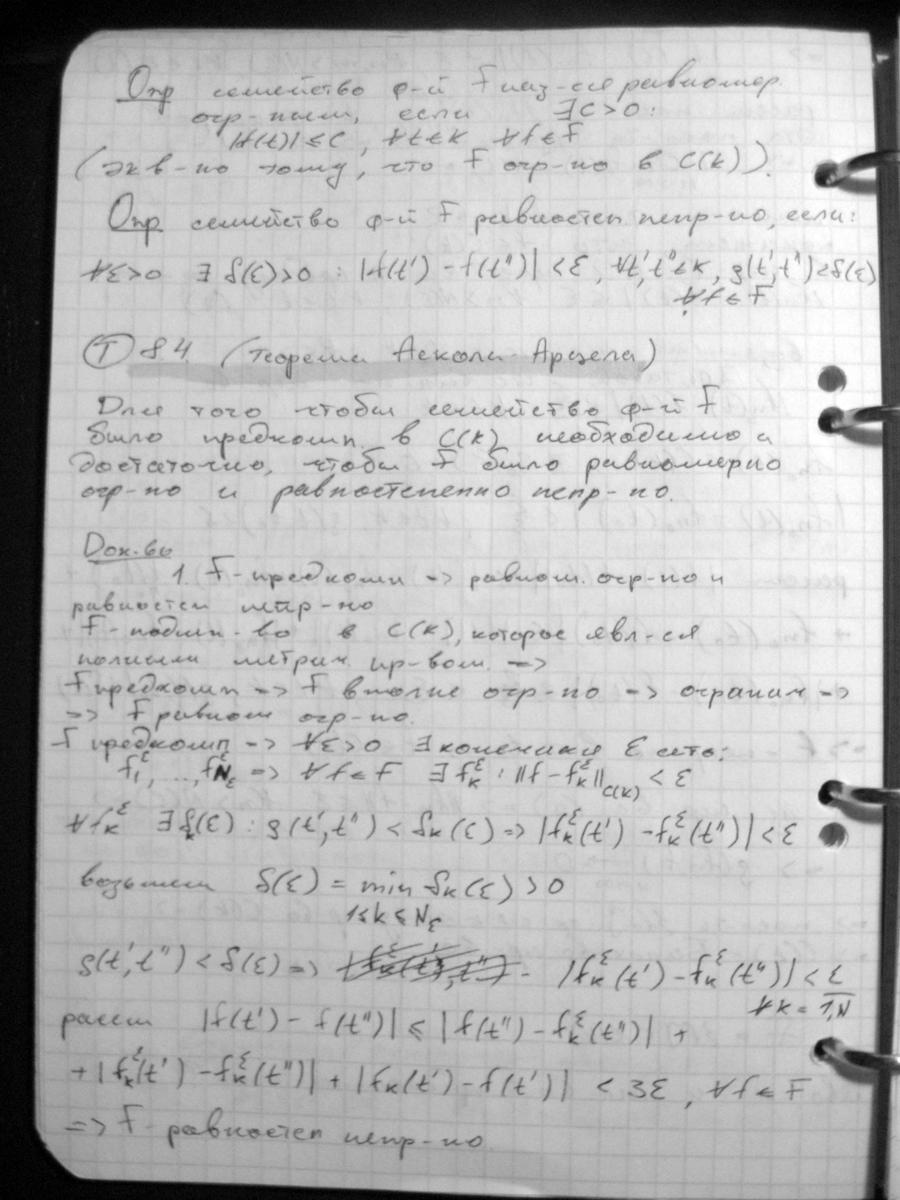 Опр семейство ф-й F наз-ся равномер.
огр-ным, если ∃C>0:
|f(t)| ≤ C, ∀t∈K ∀f∈F
(экв-но тому, что F огр-но в C(K)).
Опр семейство ф-й F равностеп непр-но, если:
∀ε>0 ∃ δ(ε)>0 : |f(t') - f(t'')| < ε, ∀t',t''∈K, ρ(t',t'')<δ(ε)
∀f∈F
Т 8.4 (теорема Асколи-Арцела)
Для того чтобы семейство ф-й F
было предкомп. в C(K) необходимо и
достаточно, чтобы F было равномерно
огр-но и равностепенно непр-но.
Док-во
1. F-предкомп => равном. огр-но и
равностеп непр-но
F-подмн-во в C(K), которое явл-ся
полным метрич. пр-вом. =>
F предкомп => F вполне огр-но => огранич =>
=> F равном огр-но.
F предкомп => ∀ε>0 ∃ конечная ε сеть:
f₁^ε, ..., f_{N_ε}^ε => ∀f∈F ∃f_k^ε : ||f-f_k^ε||_{C(K)} < ε
∀f_k^ε ∃δ_k(ε) : ρ(t',t'') < δ_k(ε) => |f_k^ε(t') - f_k^ε(t'')| < ε
возьмем δ(ε) = min δ_k(ε) > 0
1≤k≤N_ε
ρ(t',t'') < δ(ε) => - |f_k^ε(t') - f_k^ε(t'')| < ε
∀k = 1,N
рассм |f(t') - f(t'')| ≤ |f(t'') - f_k^ε(t'')| +
+ |f_k^ε(t') - f_k^ε(t'')| + |f_k(t') - f(t')| < 3ε, ∀f∈F
=> F-равностеп непр-но.